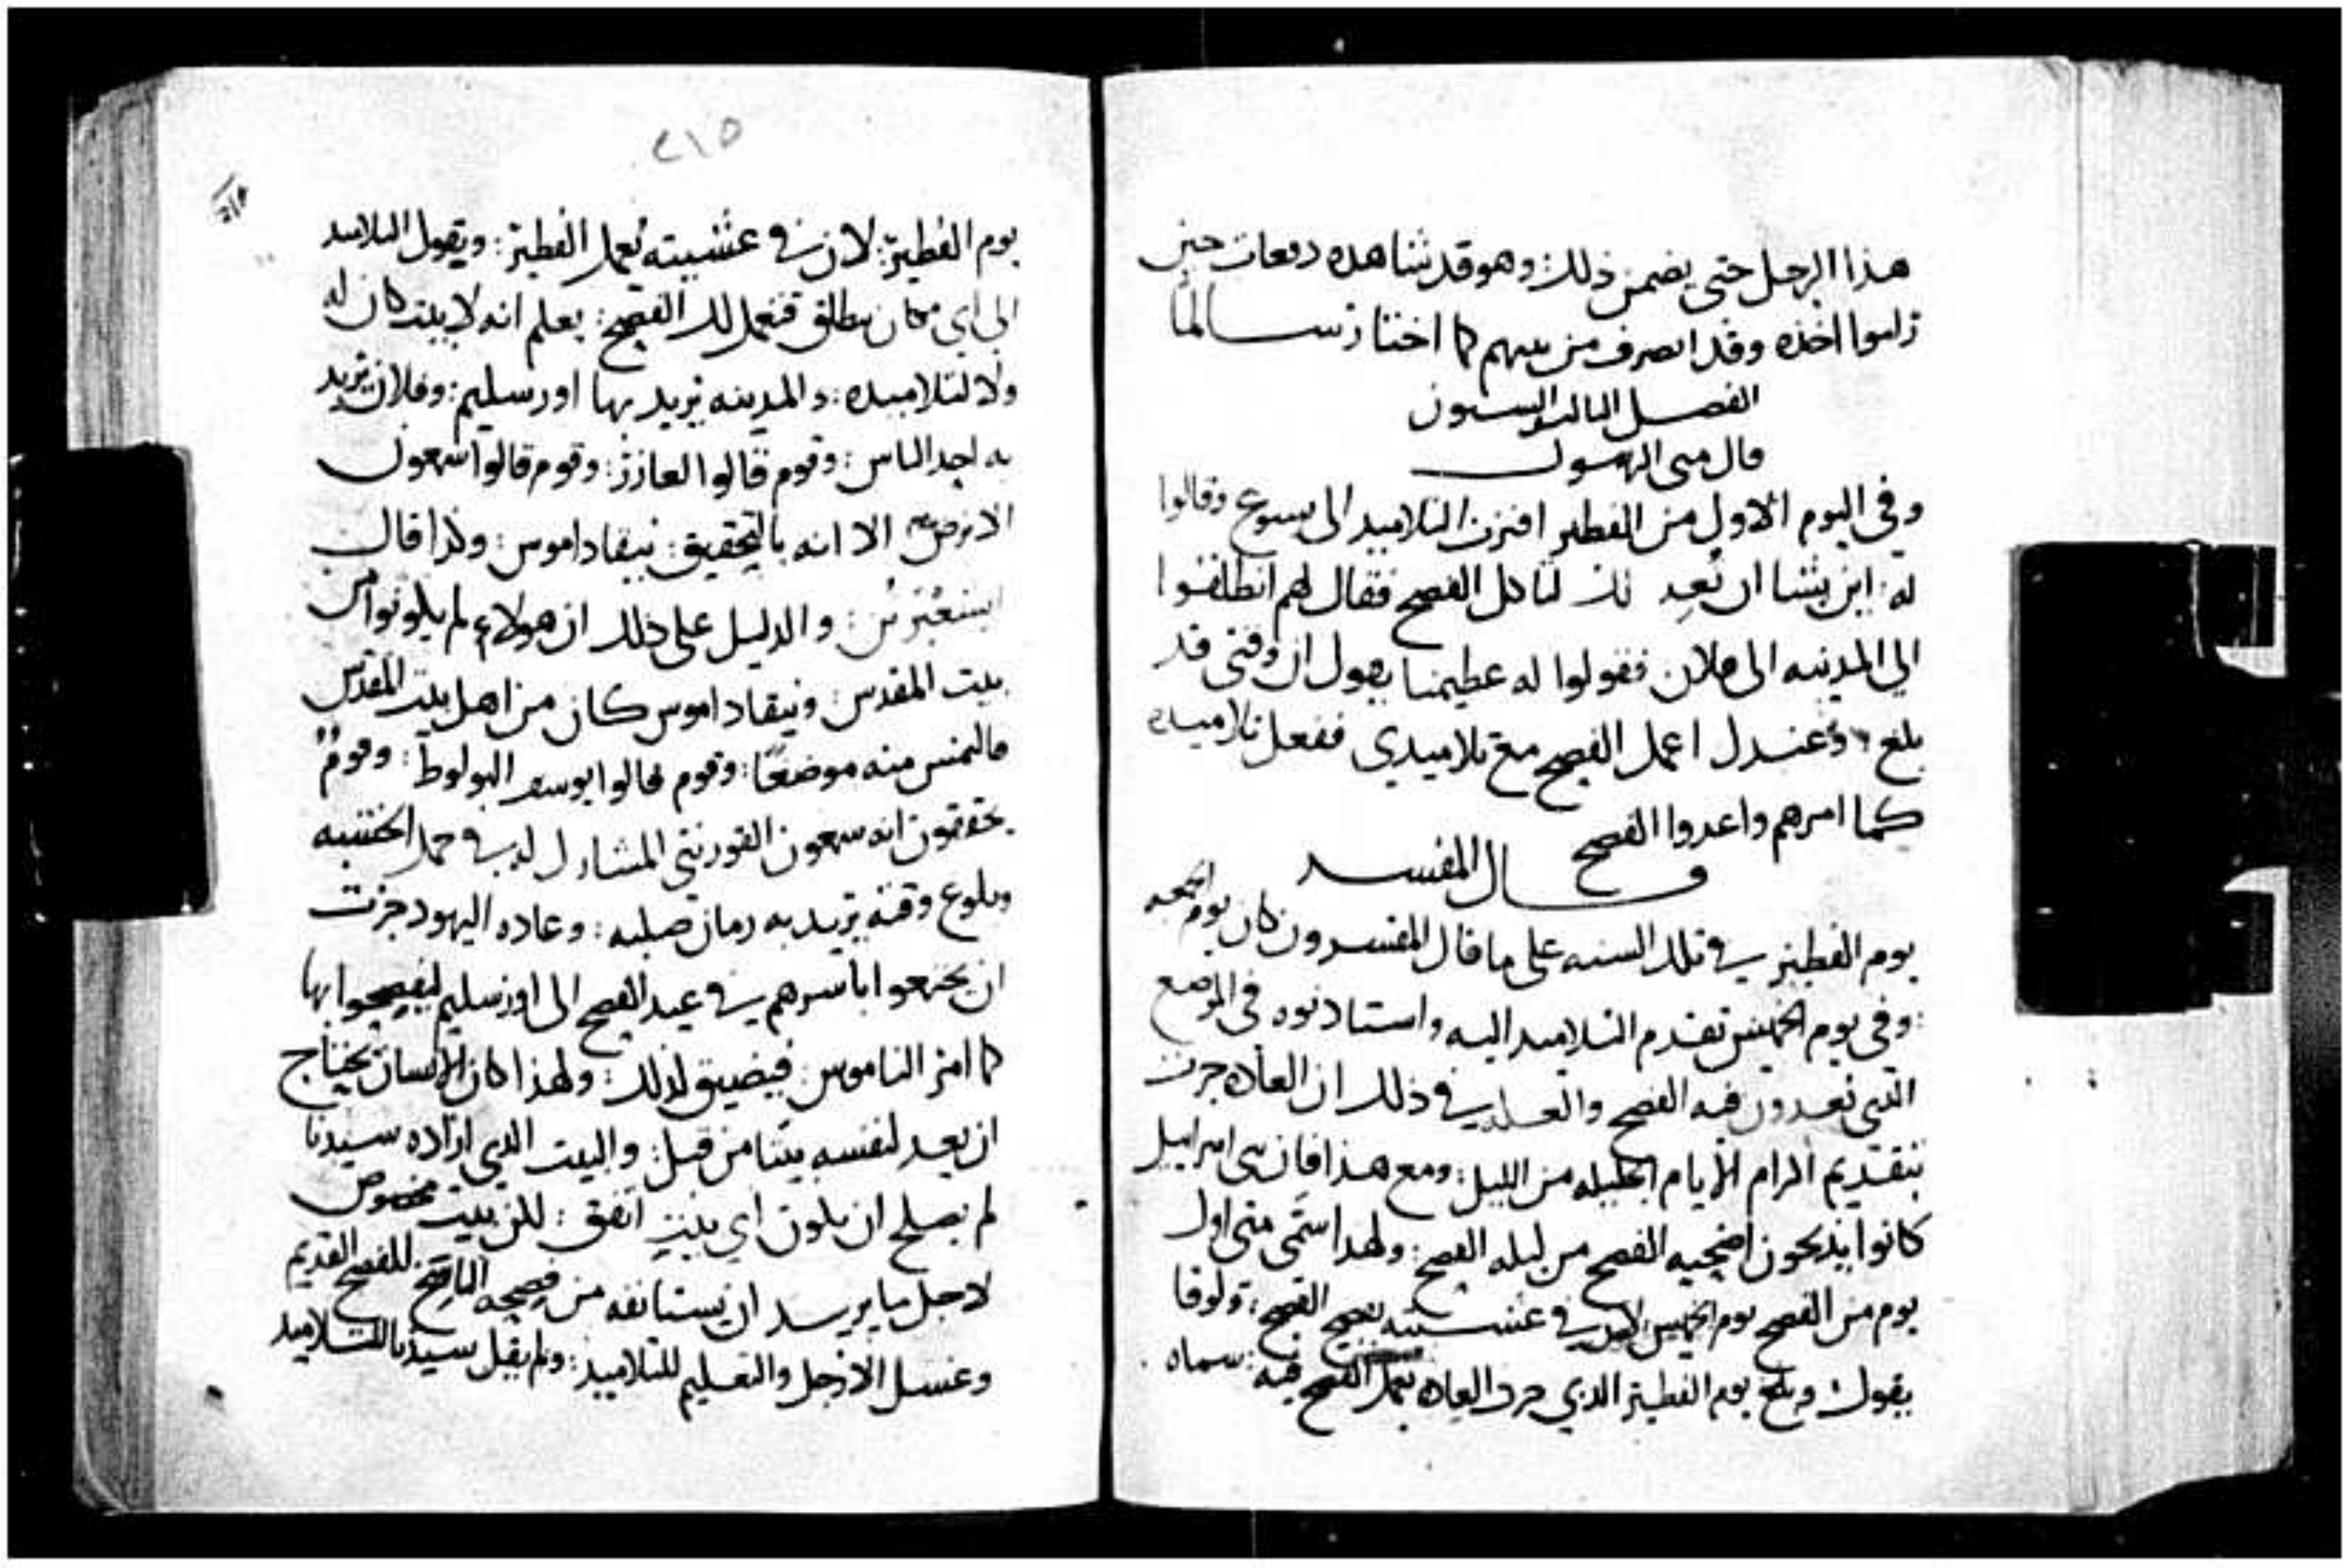 هذا الرجل حتى يضمن ذلك: وهو قد شاهده دفعات حين
راموا اخذه وقد انصرف من بينهم كما اختار سالمًا
الفصل الثالث والستون
قال متى الرسول
وفي اليوم الاول من الفطير اقترب التلاميذ الى يسوع وقالوا
له: اين تشا ان نُعد لك لتاكل الفصح فقال لهم انطلقوا
الي المدينه الى فلان فقولوا له عظيمنا يقول ان وقتي قد
بلغ وعندك اعمل الفصح مع تلاميدي ففعل تلاميده
كما امرهم واعدوا الفصح
قال المفسر
يوم الفطير في تلك السنه على ما قال المفسرون كان يوم الجمعه
: وفي يوم الخميس تقدم التلاميد اليه واستادنوه في الموضع
الذي يعدون فيه الفصح والعله في ذلك ان العاده جرت
بتقديم اكرام الايام الجليله من الليل: ومع هذا فان بني اسراييل
كانوا يذبحون اضحيه الفصح من ليله الفصح: ولهذا سمى متى اول
يوم من الفصح يوم الخميس الذي في عشيته يفصح الفصح: ولوقا
يقول وبلغ يوم الفطير الذي جرت العاده بعمل الفصح فيه: سماه
٢١٥
يوم الفطير: لان في عشيته يُعمل الفطير: ويقول التلاميد
الى اي مكان ننطلق فنعمل لك الفصح: يعلم انه لا بيت كان له
ولا لتلاميده: والمدينه يريد بها اورسليم: وفلان يريد
به احد الناس: وقوم قالوا العازر: وقوم قالوا سمعون
الابرص الا انه بالتحقيق: نيقاداموس: وكذا قال
: والدليل على ذلك ان هولاء لم يكونوا من
بيت المقدس: ونيقاداموس كان من اهل بيت المقدس
فالتمس منه موضعًا: وقوم قالوا يوسف البولوط: وقومٌ
يحققون انه سمعون القورنيي المشارك له في حمل الخشبه
وبلوغ وقته يريد به زمان صلبه: وعاده اليهود جرت
ان يجتمعوا باسرهم في عيد الفصح الى اورسليم ليفصحوا بها
كما امر الناموس: فيضيق لذلك: ولهذا كان الانسان يحتاج
ان يعد لنفسه بيتا من قبل: والبيت الذي اراده سيدنا
لم يصلح ان يكون اي بيت اتفق: لكن بيت مخصوص
لاجل ما يريد ان يستانفه من فصحه للفصح القديم
وغسل الارجل والتعليم للتلاميد: ولم يقل سيدنا للتلاميد